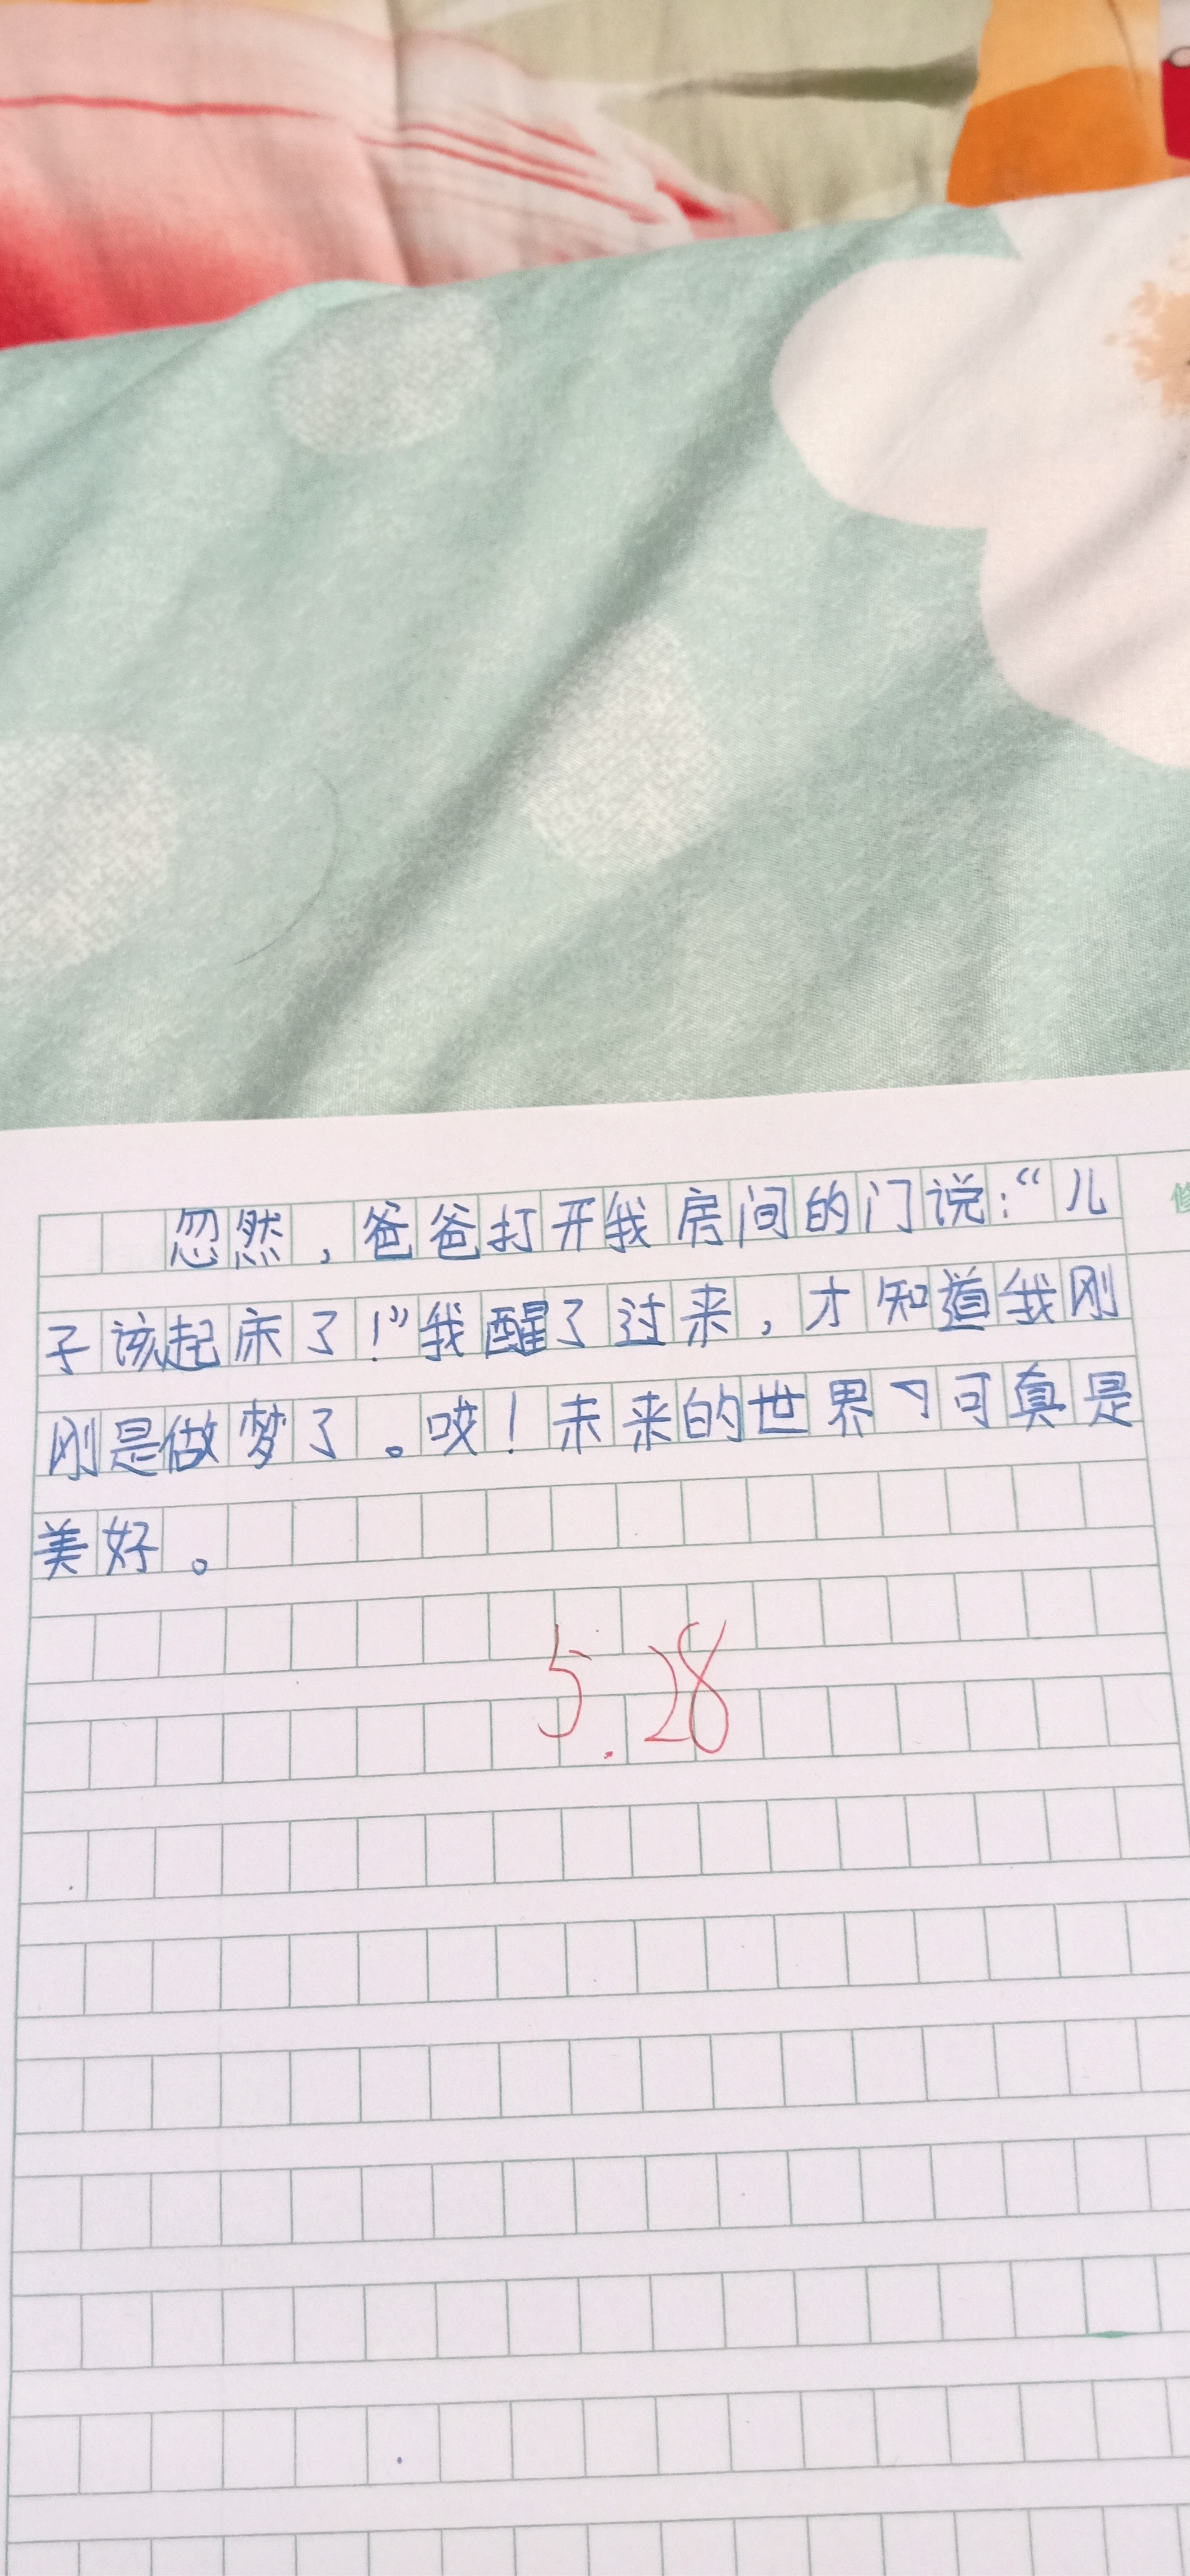 忽然，爸爸打开我房间的门说：“儿
子该起床了！”我醒了过来，才知道我刚
刚是做梦了。哎！未来的世界可真是
美好。
5.28